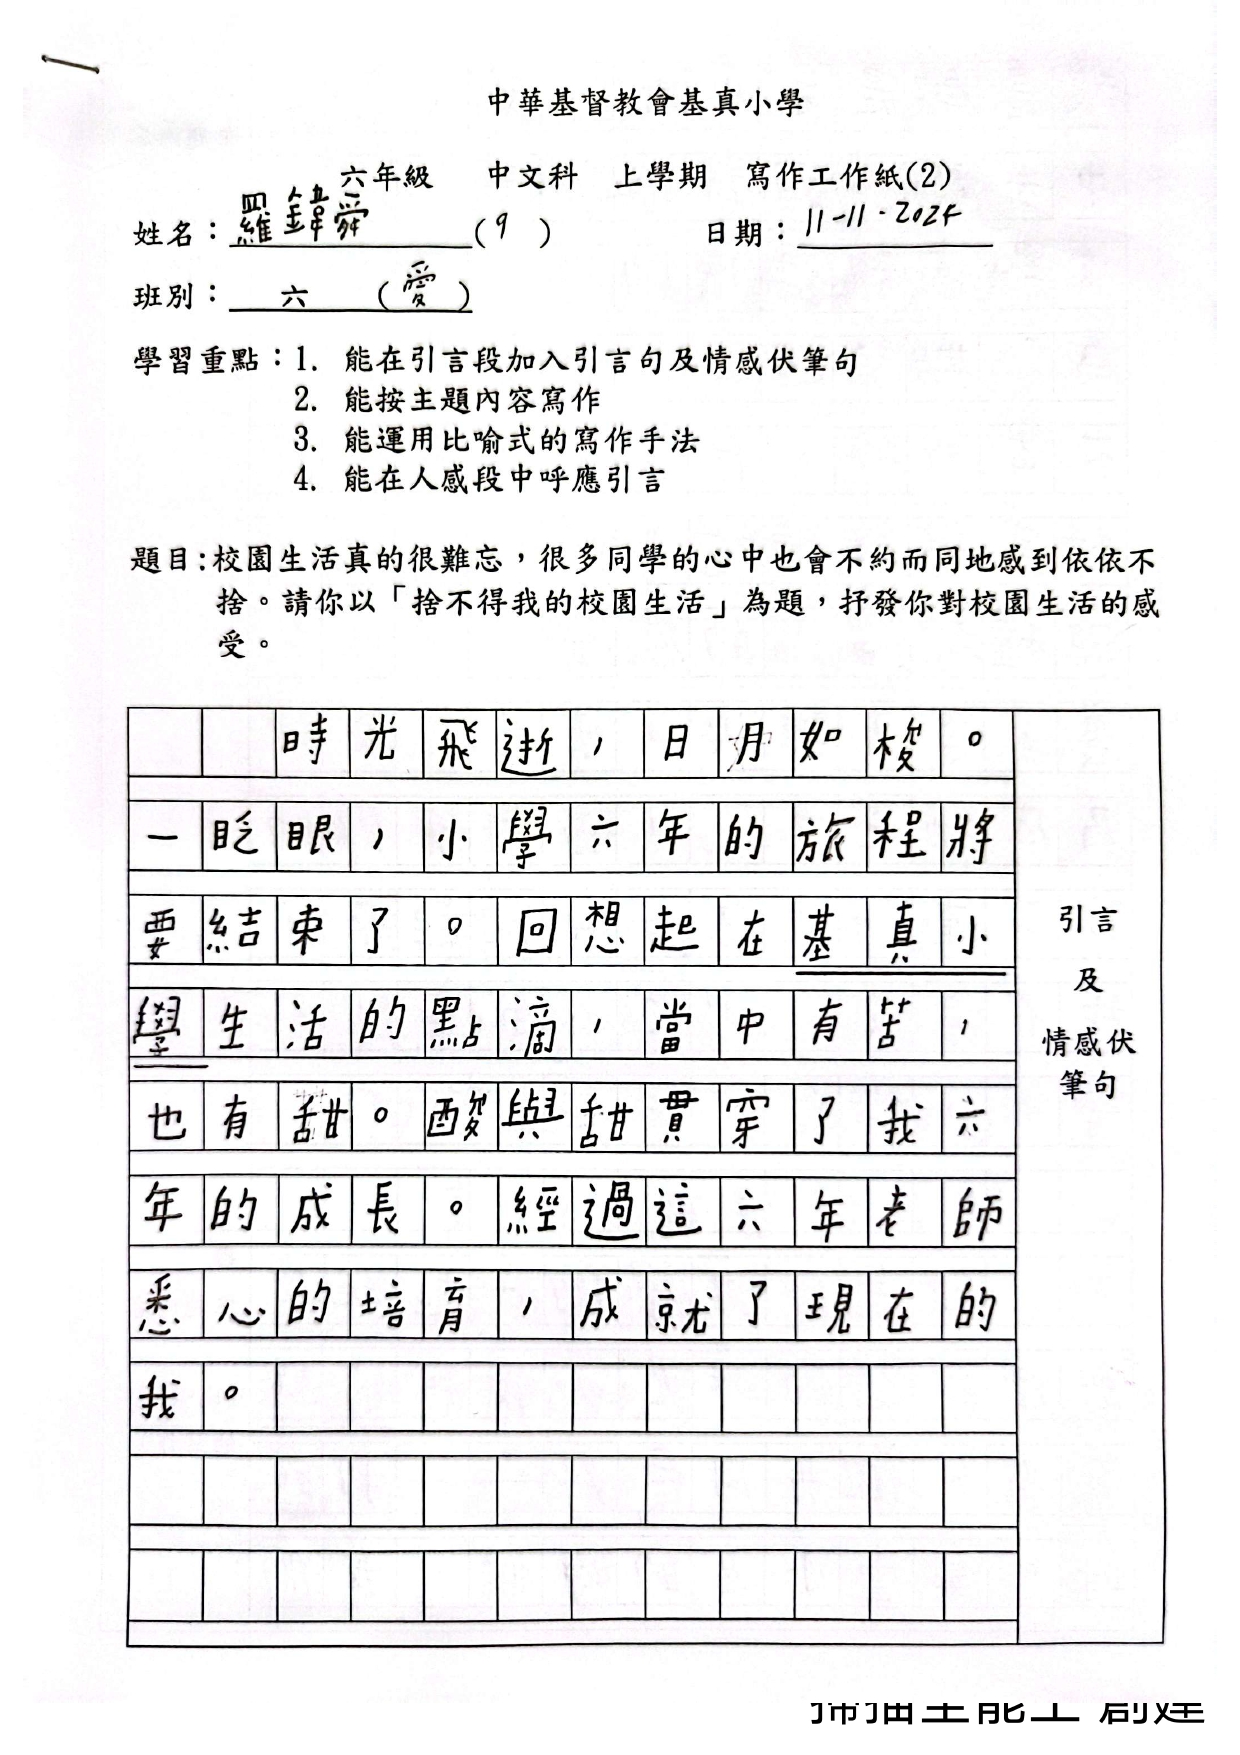 中華基督教會基真小學
六年級 中文科 上學期 寫作工作紙(2)
姓名：羅鍏舜(9) 日期：11-11-2024
班別：六(愛)
學習重點：1. 能在引言段加入引言句及情感伏筆句
2. 能按主題內容寫作
3. 能運用比喻式的寫作手法
4. 能在人感段中呼應引言
題目:校園生活真的很難忘，很多同學的心中也會不約而同地感到依依不
捨。請你以「捨不得我的校園生活」為題，抒發你對校園生活的感
受。
時光飛逝，日月如梭。
一眨眼，小學六年的旅程將
要結束了。回想起在基真小
學生活的點滴，當中有苦，
也有甜。酸與甜貫穿了我六
年的成長。經過這六年老師
悉心的培育，成就了現在的
我。
引言
及
情感伏
筆句